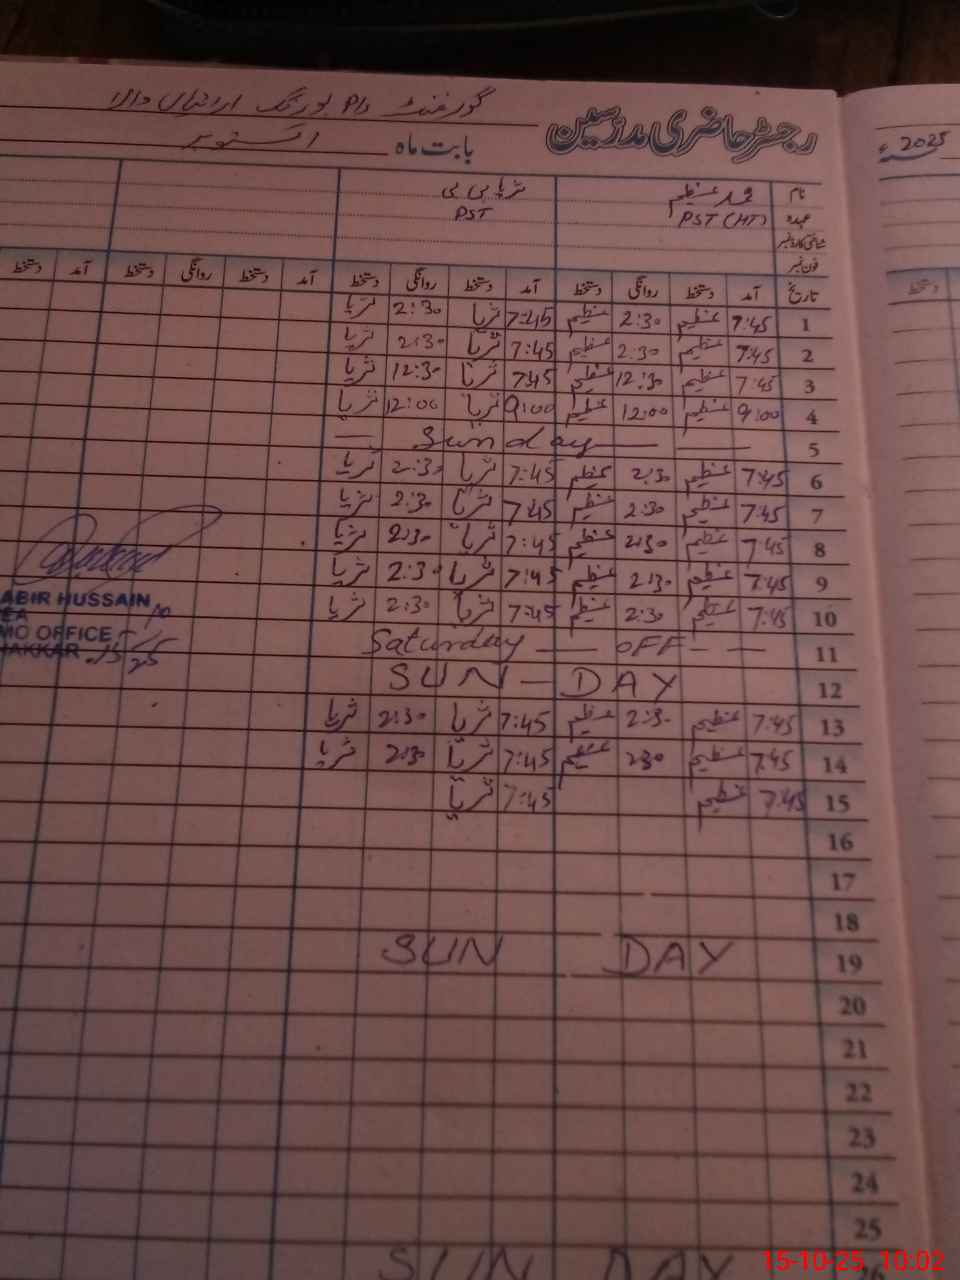 گورنمنٹ بوائز
رجسٹر حاضری مدرسین
بابت ماہ اکتوبر
2025ء
نام محمد عظیم ثریا بی بی
عہدہ PST (HT) PST
شناختی کارڈ نمبر
فون نمبر
تاریخ آمد دستخط روانگی دستخط آمد دستخط روانگی دستخط آمد دستخط روانگی دستخط آمد دستخط
دستخط
1 7:45 عظیم 2:30 عظیم 7:45 ثریا 2:30 ثریا
2 7:45 عظیم 2:30 عظیم 7:45 ثریا 2:30 ثریا
3 7:45 عظیم 12:30 عظیم 7:45 ثریا 12:30 ثریا
4 9:00 عظیم 12:00 عظیم 9:00 ثریا 12:00 ثریا
5 Sunday
6 7:45 عظیم 2:30 عظیم 7:45 ثریا 2:30 ثریا
7 7:45 عظیم 2:30 عظیم 7:45 ثریا 2:30 ثریا
8 7:45 عظیم 2:30 عظیم 7:45 ثریا 2:30 ثریا
9 7:45 عظیم 2:30 عظیم 7:45 ثریا 2:30 ثریا
10 7:45 عظیم 2:30 عظیم 7:45 ثریا 2:30 ثریا
ABIR HUSSAIN
EA
MO OFFICE
HAKKAR
11 Saturday — OFF — —
12 SUN - DAY
13 7:45 عظیم 2:30 عظیم 7:45 ثریا 2:30 ثریا
14 7:45 عظیم 2:30 عظیم 7:45 ثریا 2:30 ثریا
15 7:45 عظیم 7:45 ثریا
16
17
18
19 SUN DAY
20
21
22
23
24
25
SUN DAY
15-10-25 10:02